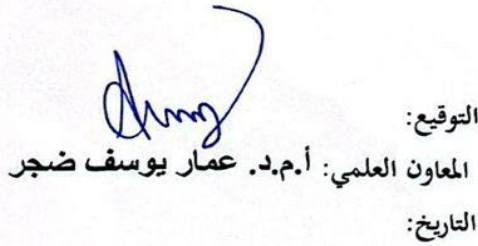 التوقيع:
المعاون العلمي: أ.م.د. عمار يوسف ضجر
التاريخ: